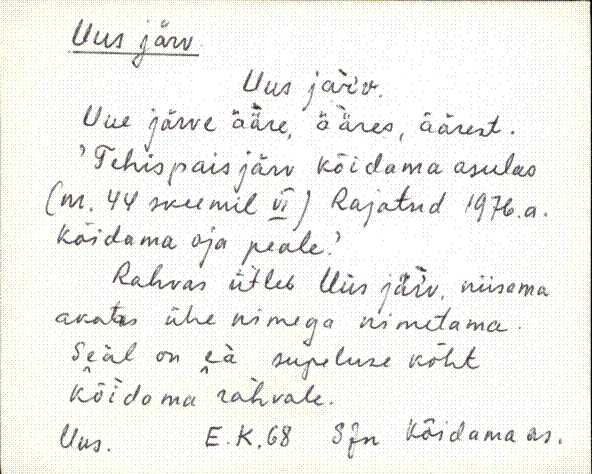 Uus järv
Uus jär̀v.
Uue järve ääre, ääres, äärest.
'Tehispaisjärv Kõidama asulas
(nr. 44 skeemil VI) Rajatud 1976.a.
Kõidama oja peale.'
Rahvas ütleb Uùs jär̀v, niisama
akatas ühe nimega nimetama.
Seäl on eä supeluse kõht
kõidama rahvale.
Uus. E.K. 68 Sjn Kõidama as.